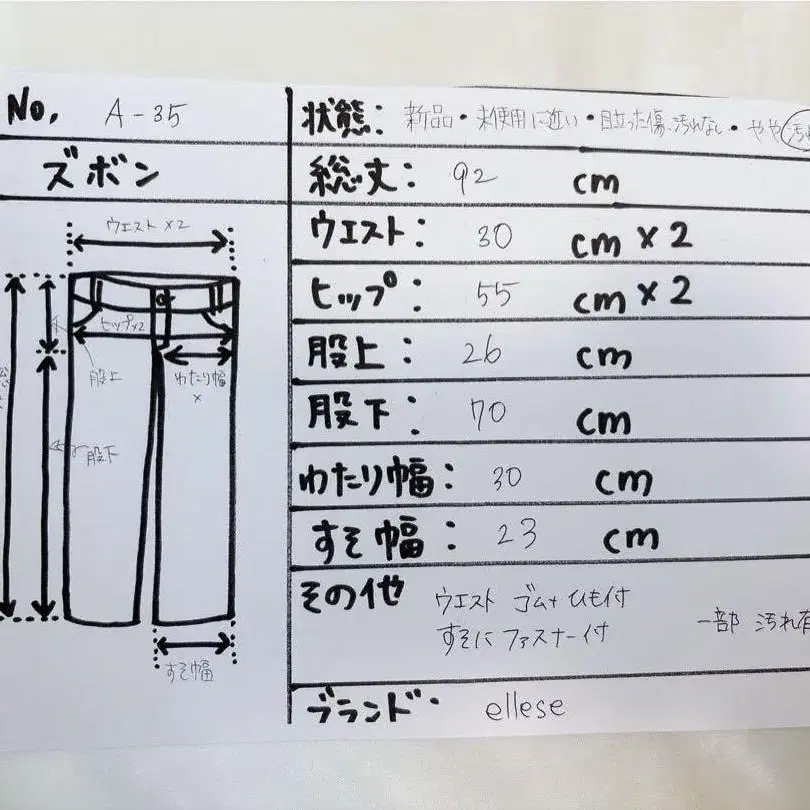 No. A-35
ズボン
ウエスト×2
ヒップ×2
股上
わたり幅
×
股下
すそ幅
状態: 新品・未使用に近い・目立った傷、汚れなし・やや汚
総丈: 92 cm
ウエスト: 30 cm×2
ヒップ: 55 cm×2
股上: 26 cm
股下: 70 cm
わたり幅: 30 cm
すそ幅: 23 cm
その他 ウエスト ゴム+ひも付
すそにファスナー付 一部 汚れ有
ブランド・ ellese